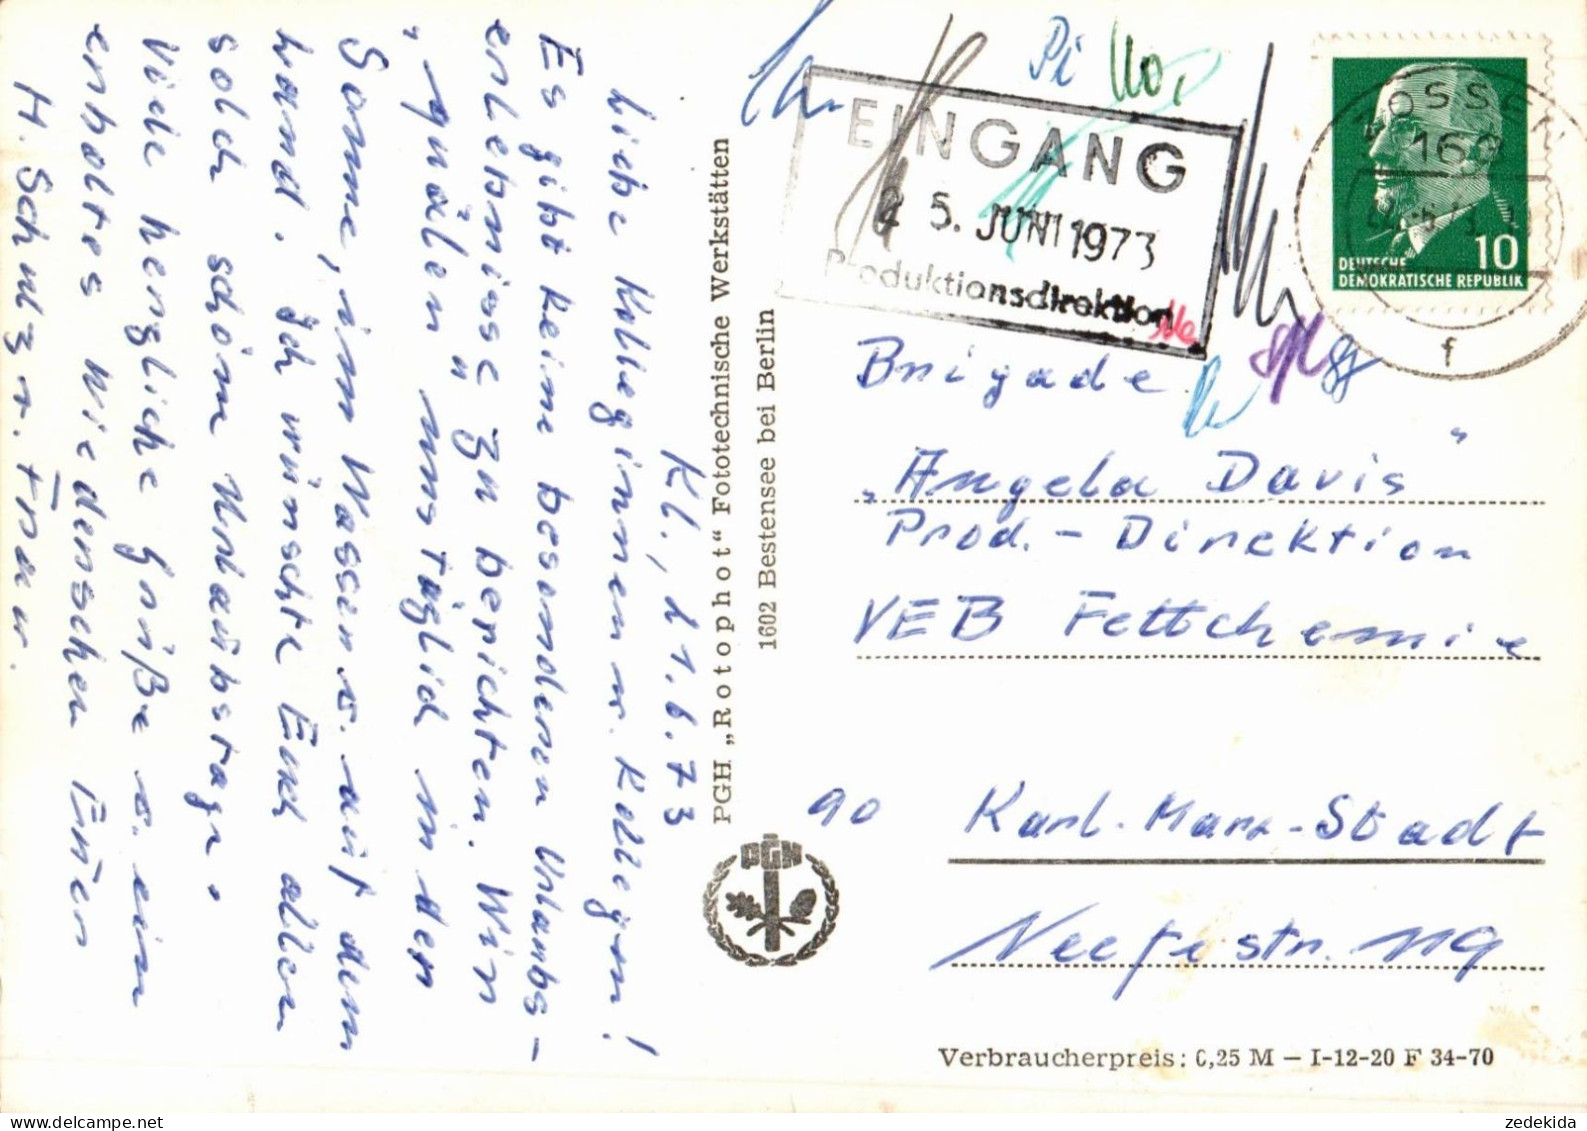 Kl., 21.6.73
Liebe Kolleginnen u. Kollegen!
Es gibt keine besonderen Urlaubs-
erlebnisse zu berichten. Wir
"quälen" uns täglich in der
Sonne, im Wasser u. auf dem
Land. Ich wünschte Euch allen
solch schöne Urlaubstage.
Viele herzliche Grüße u. ein
erholtes Wiedersehen Euer
H. Schulz u. Frau.
PGH „Rotophot“ Fototechnische Werkstätten
1602 Bestensee bei Berlin
PGH
EINGANG
25. JUNI 1973
Produktionsdirektion
Pi
ZOSSEN
DEUTSCHE
DEMOKRATISCHE REPUBLIK
10
f
Brigade
„Angela Davis"
Prod.-Direktion
VEB Fettchemie
90 Karl-Marx-Stadt
Neefestr. 119
Verbraucherpreis: 0,25 M — I-12-20 F 34-70
zedekida